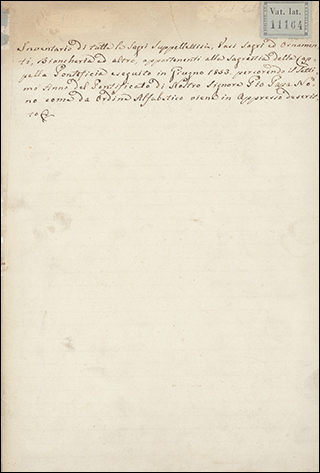 Vat. lat.
11164
Inventario di tutte le Sagri Suppellettili, Vasi Sagri ed Ornamen-
ti, Biancheria ed altro, appartenenti alla Sagrestia della Cap-
pella Pontificia eseguito in Giugno 1853. percorrendo il Setti-
mo Anno del Pontificato di Nostro Signore Pio Papa No-
no come da Ordine Alfabetico viene in Appresso descrit-
to